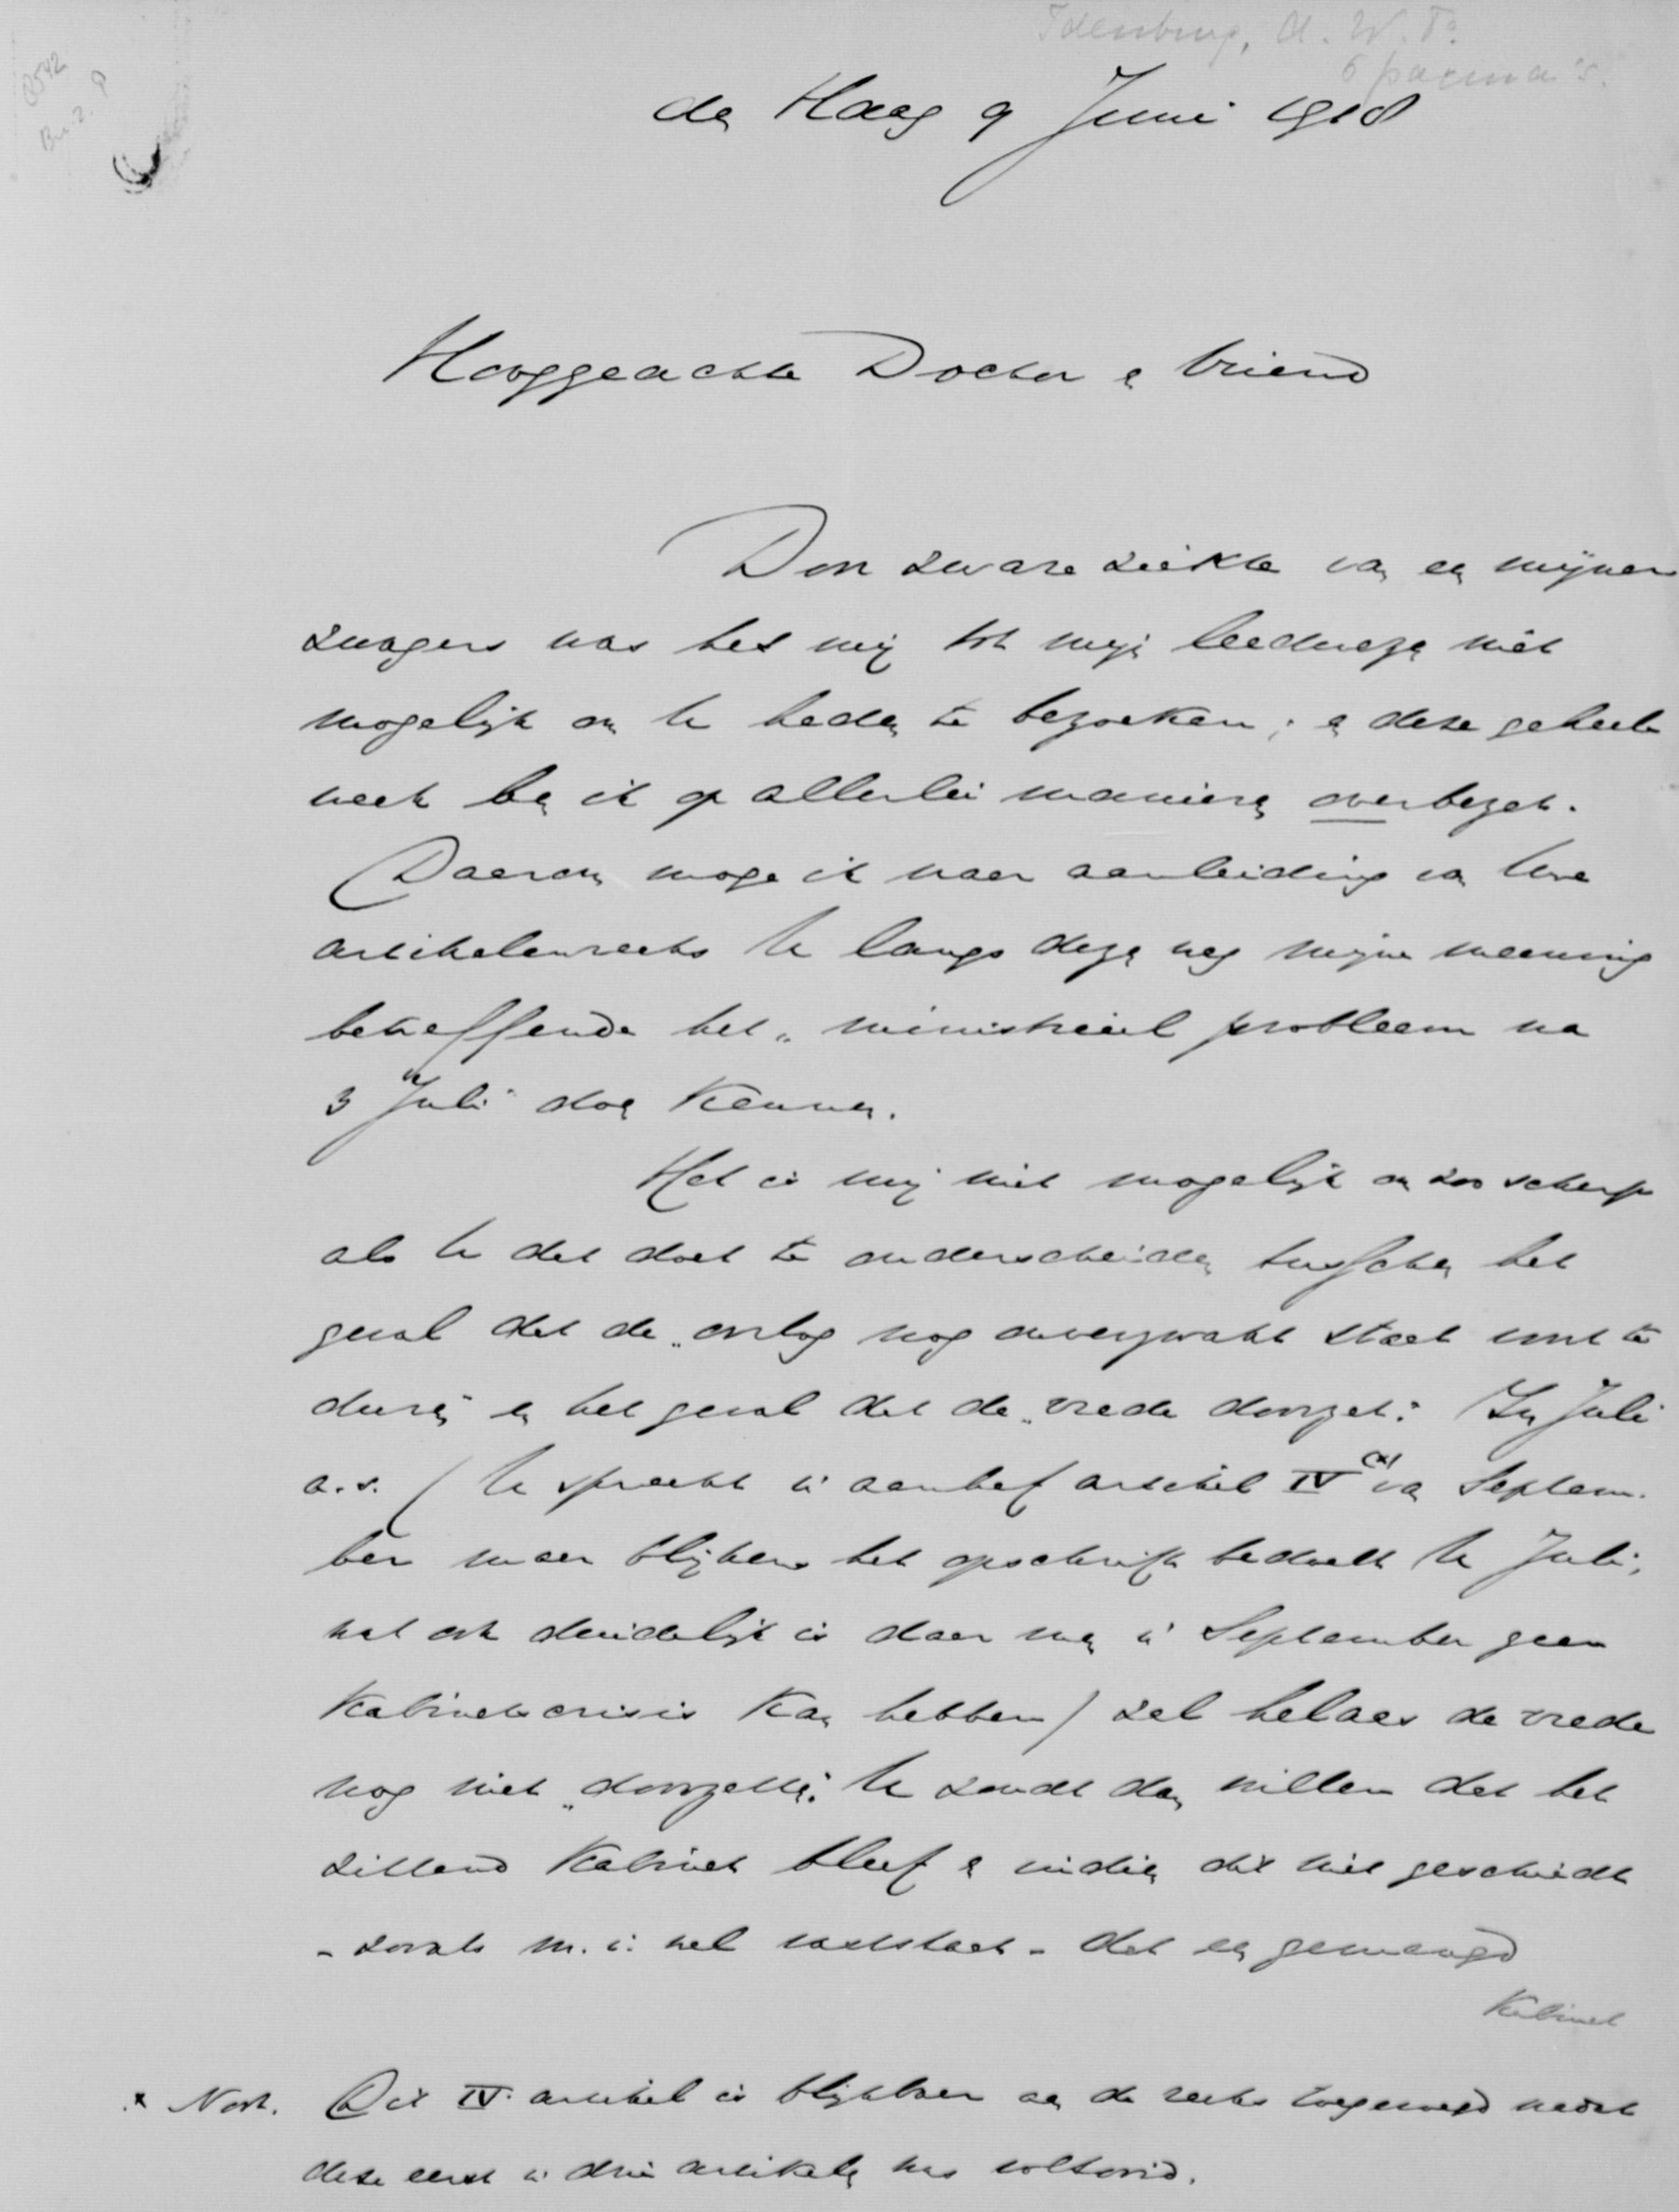 Idenburg, A. W. F.
6 pagina's.
B542
den Haag 9 Juni 1918
Hooggeachte Doctor en Vriend
Door zware ziekte van een mijner
zwagers was het mij tot mijn leedwezen niet
mogelijk om U heden te bezoeken; en deze geheele
week ben ik op allerlei manieren overbezet.
Daarom moge ik naar aanleiding van Uwe
artikelenreeks U langs dezen weg mijne meening
betreffende het „ministrieel probleem na
3 Juli" doen kennen.
Het is mij niet mogelijk om zoo scherp
als U dat doet te onderscheiden tusschen het
geval dat de „oorlog nog onverzwakt staat voort te
duren" en het geval dat de „vrede doorzet". In Juli
a.s. (U spreekt in aanhef artikel IV (x) van Septem-
ber maar blijkens het opschrift bedoelt U Juli,
wat ook duidelijk is daar men in September geen
Kabinetscrisis kan hebben) zal helaas de vrede
nog niet „doorzetten". U zoudt dan willen dat het
zittend Kabinet bleef en indien dit niet geschiedt
- zooals m.i. wel vaststaat - dat een gemengd
Kabinet
x Noot. Dit IV artikel is blijkbaar aan de reeks toegevoegd nadat
deze eerst in drie artikelen was voltooid.